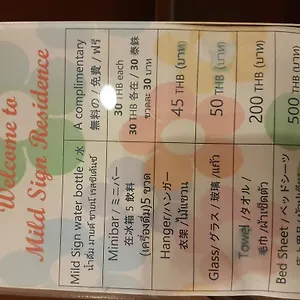 Welcome to
Mild Sign Residence
Mild Sign water bottle / 水
น้ำดื่ม มายด์ ซายน์ เรสซิเด้นซ์
A complimentary
無料の / 免費 / ฟรี
Minibar / ミニバー
在冰箱 5 飲料
(เครื่องดื่ม)5 ขวด
30 THB each
30 THB 各在 / 30 泰銖
ขวดละ 30 บาท
Hanger/ハンガー
衣架 / ไม้แขวน
45 THB (บาท)
Glass/ グラス / 玻璃 /แก้ว
50 THB (บาท)
Towel /タオル/
毛巾 /ผ้าเช็ดตัว
200 THB (บาท)
Bed Sheet / ベッドシーツ
500 THB (บาท)